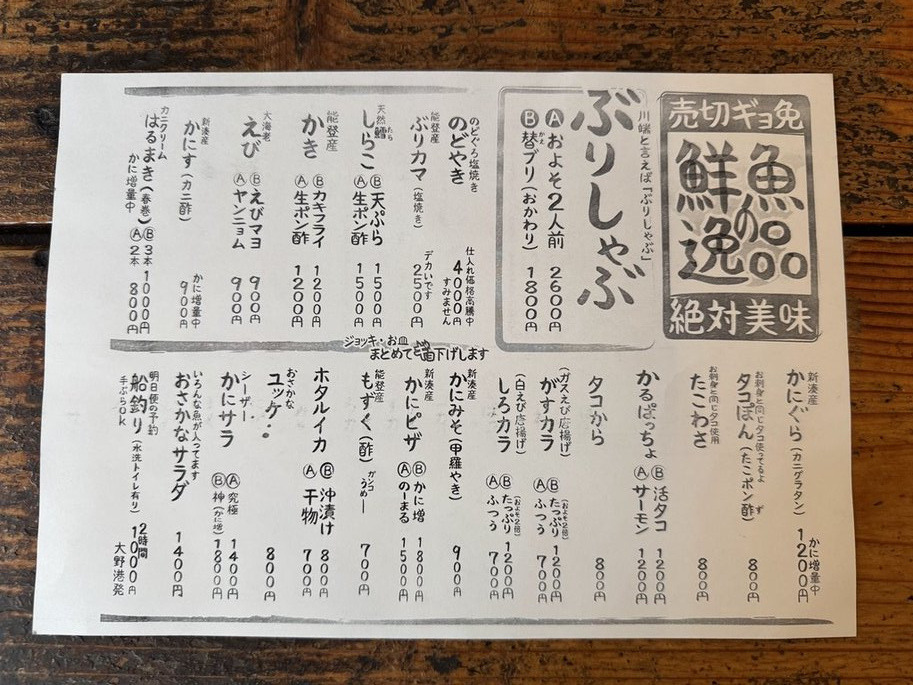 売切ギョ免
魚の
鮮逸品
絶対美味
川端と言えば「ぶりしゃぶ」
ぶりしゃぶ
Ⓐおよそ2人前 2600円
Ⓑ替ブリ(おかわり) 1800円
かえ
のどぐろ塩焼き
のどやき 4000円
仕入れ価格高騰中
すみません
能登産
ぶりカマ(塩焼き) 2500円
デカいです
天然鱈
たら
しらこ
Ⓑ天ぷら 1500円
Ⓐ生ポン酢 1500円
能登産
かき
Ⓑカキフライ 1200円
Ⓐ生ポン酢 1200円
大海老
えび
Ⓑえびマヨ 900円
Ⓐヤンニョム 900円
新湊産
かにす(カニ酢) 900円
かに増量中
カニクリーム
はるまき(春巻)
かに増量中
Ⓑ3本 1000円
Ⓐ2本 800円
ジョッキ・お皿
まとめてご着下げします
新湊産
かにぐら(カニグラタン) 1200円
かに増量中
お刺身と同じタコ使ってるよ
タコぽん(たこポン酢) 800円
ず
お刺身と同じタコ使用
たこわさ 800円
かるぱっちょ
Ⓑ活タコ 1200円
Ⓐサーモン 1200円
タコから 800円
(ガスえび唐揚げ)
がすカラ
(およそ2倍)
Ⓑたっぷり 1200円
Ⓐふつう 700円
(白えび唐揚げ)
しろカラ
(およそ2倍)
Ⓑたっぷり 1200円
Ⓐふつう 700円
新湊産
かにみそ(甲羅やき) 900円
新湊産
かにピザ
Ⓑかに増 1800円
Ⓐのーまる 1500円
能登産
もずく(酢) 700円
ガンコ
うめー
ホタルイカ
Ⓑ沖漬け 800円
Ⓐ干物 700円
おさかな
ユッケ 800円
シーザー
かにサラ
Ⓐ究極 1400円
Ⓑ神(かに増) 1800円
いろんな魚が入ってます
おさかなサラダ 1400円
明日便の予約
船釣り(水洗トイレ有り)
手ぶらok
2時間
1000円
大野港発